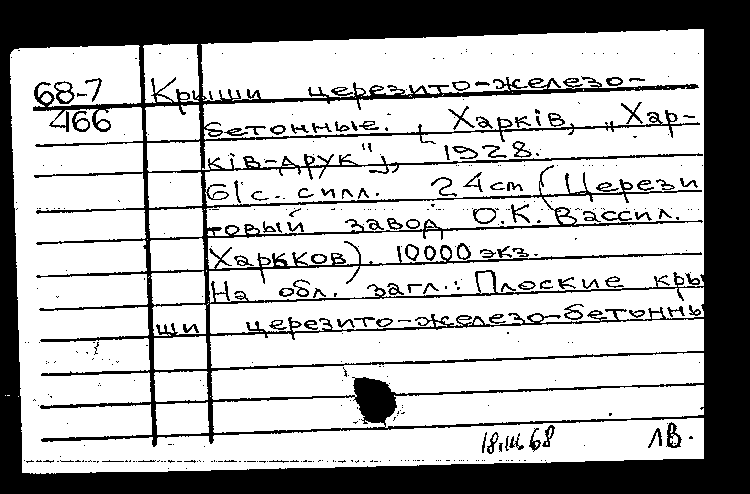 68-7 Крыши церезито-железо-
466 бетонные. [Харків, „Хар-
ків-друк"], 1928.
61 с. с илл. 24 cm (Церези
товый завод О.К. Вассил.
Харьков). 10000 экз.
На обл. загл.: Плоские кры
ши церезито-железо-бетонны
18.III.68 ЛВ.